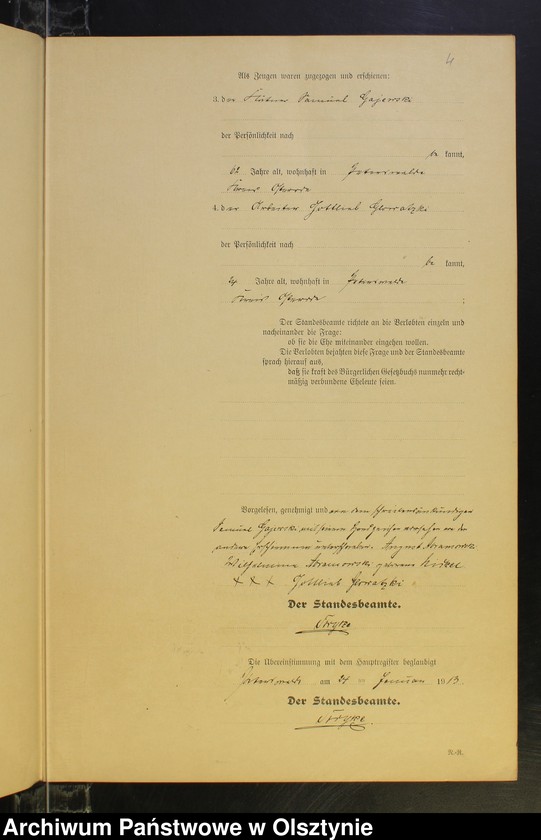 4
Als Zeugen waren zugezogen und erschienen:
3. der Kätner Samuel Gajewski
der Persönlichkeit nach
be kannt,
Jahre alt, wohnhaft in Peterswalde
Kreis Osterode
4. der Arbeiter Gottlieb Glowatzki
der Persönlichkeit nach
be kannt,
Jahre alt, wohnhaft in Peterswalde
Kreis Osterode
Der Standesbeamte richtete an die Verlobten einzeln und
nacheinander die Frage:
ob sie die Ehe miteinander eingehen wollen.
Die Verlobten bejahten diese Frage und der Standesbeamte
sprach hierauf aus,
daß sie kraft des Bürgerlichen Gesetzbuchs nunmehr recht-
mäßig verbundene Eheleute seien.
Vorgelesen, genehmigt und von dem Schreibensunkundigen
Samuel Gajewski mit seinem Handzeichen versehen von den
anderen Erschienenen unterschrieben. August
Wilhelmine geborene
+ + + Gottlieb Glowatzki
Der Standesbeamte.
Die Übereinstimmung mit dem Hauptregister beglaubigt
Peterswalde am Januar 1913.
Der Standesbeamte.
R.-R.
Archiwum Państwowe w Olsztynie